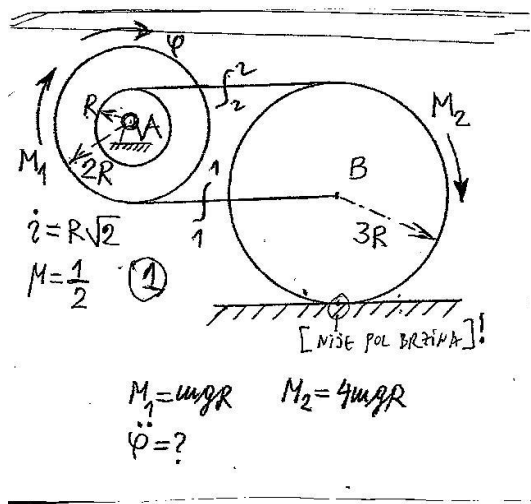 φ
R
A
M₁
2R
2
2
M₂
B
1
1
3R
i = R√2
μ = 1/2 ①
[NIJE POL BRZINA]!
M₁ = mgR M₂ = 4mgR
φ̈ = ?